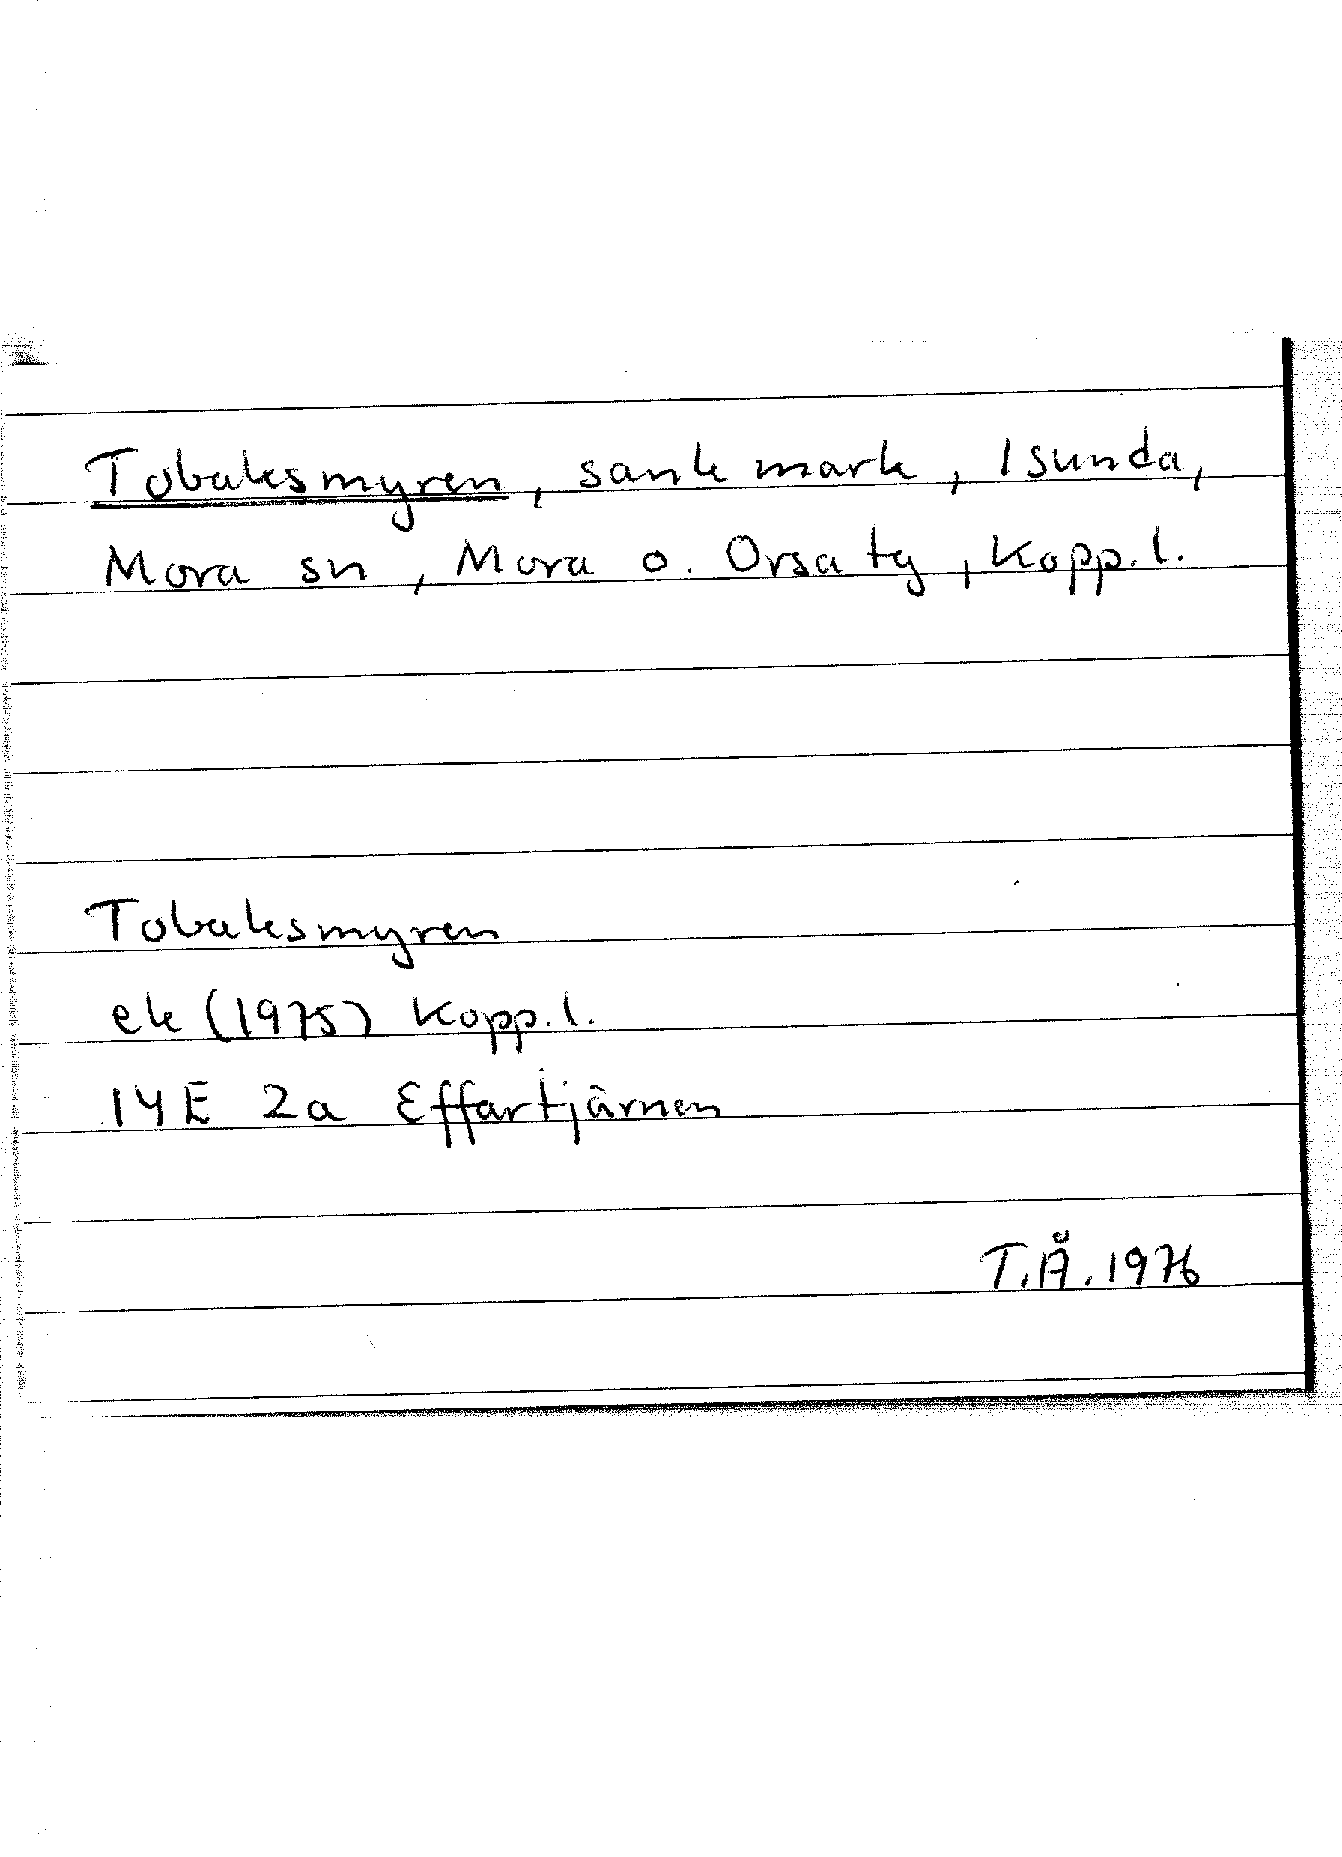 Tobaksmyren, sank mark, Isunda,
Mora sn, Mora o. Orsa tg, Kopp. l.
Tobaksmyren
ek (1975) Kopp. l.
14E 2a Effartjärnen
T.Å. 1976